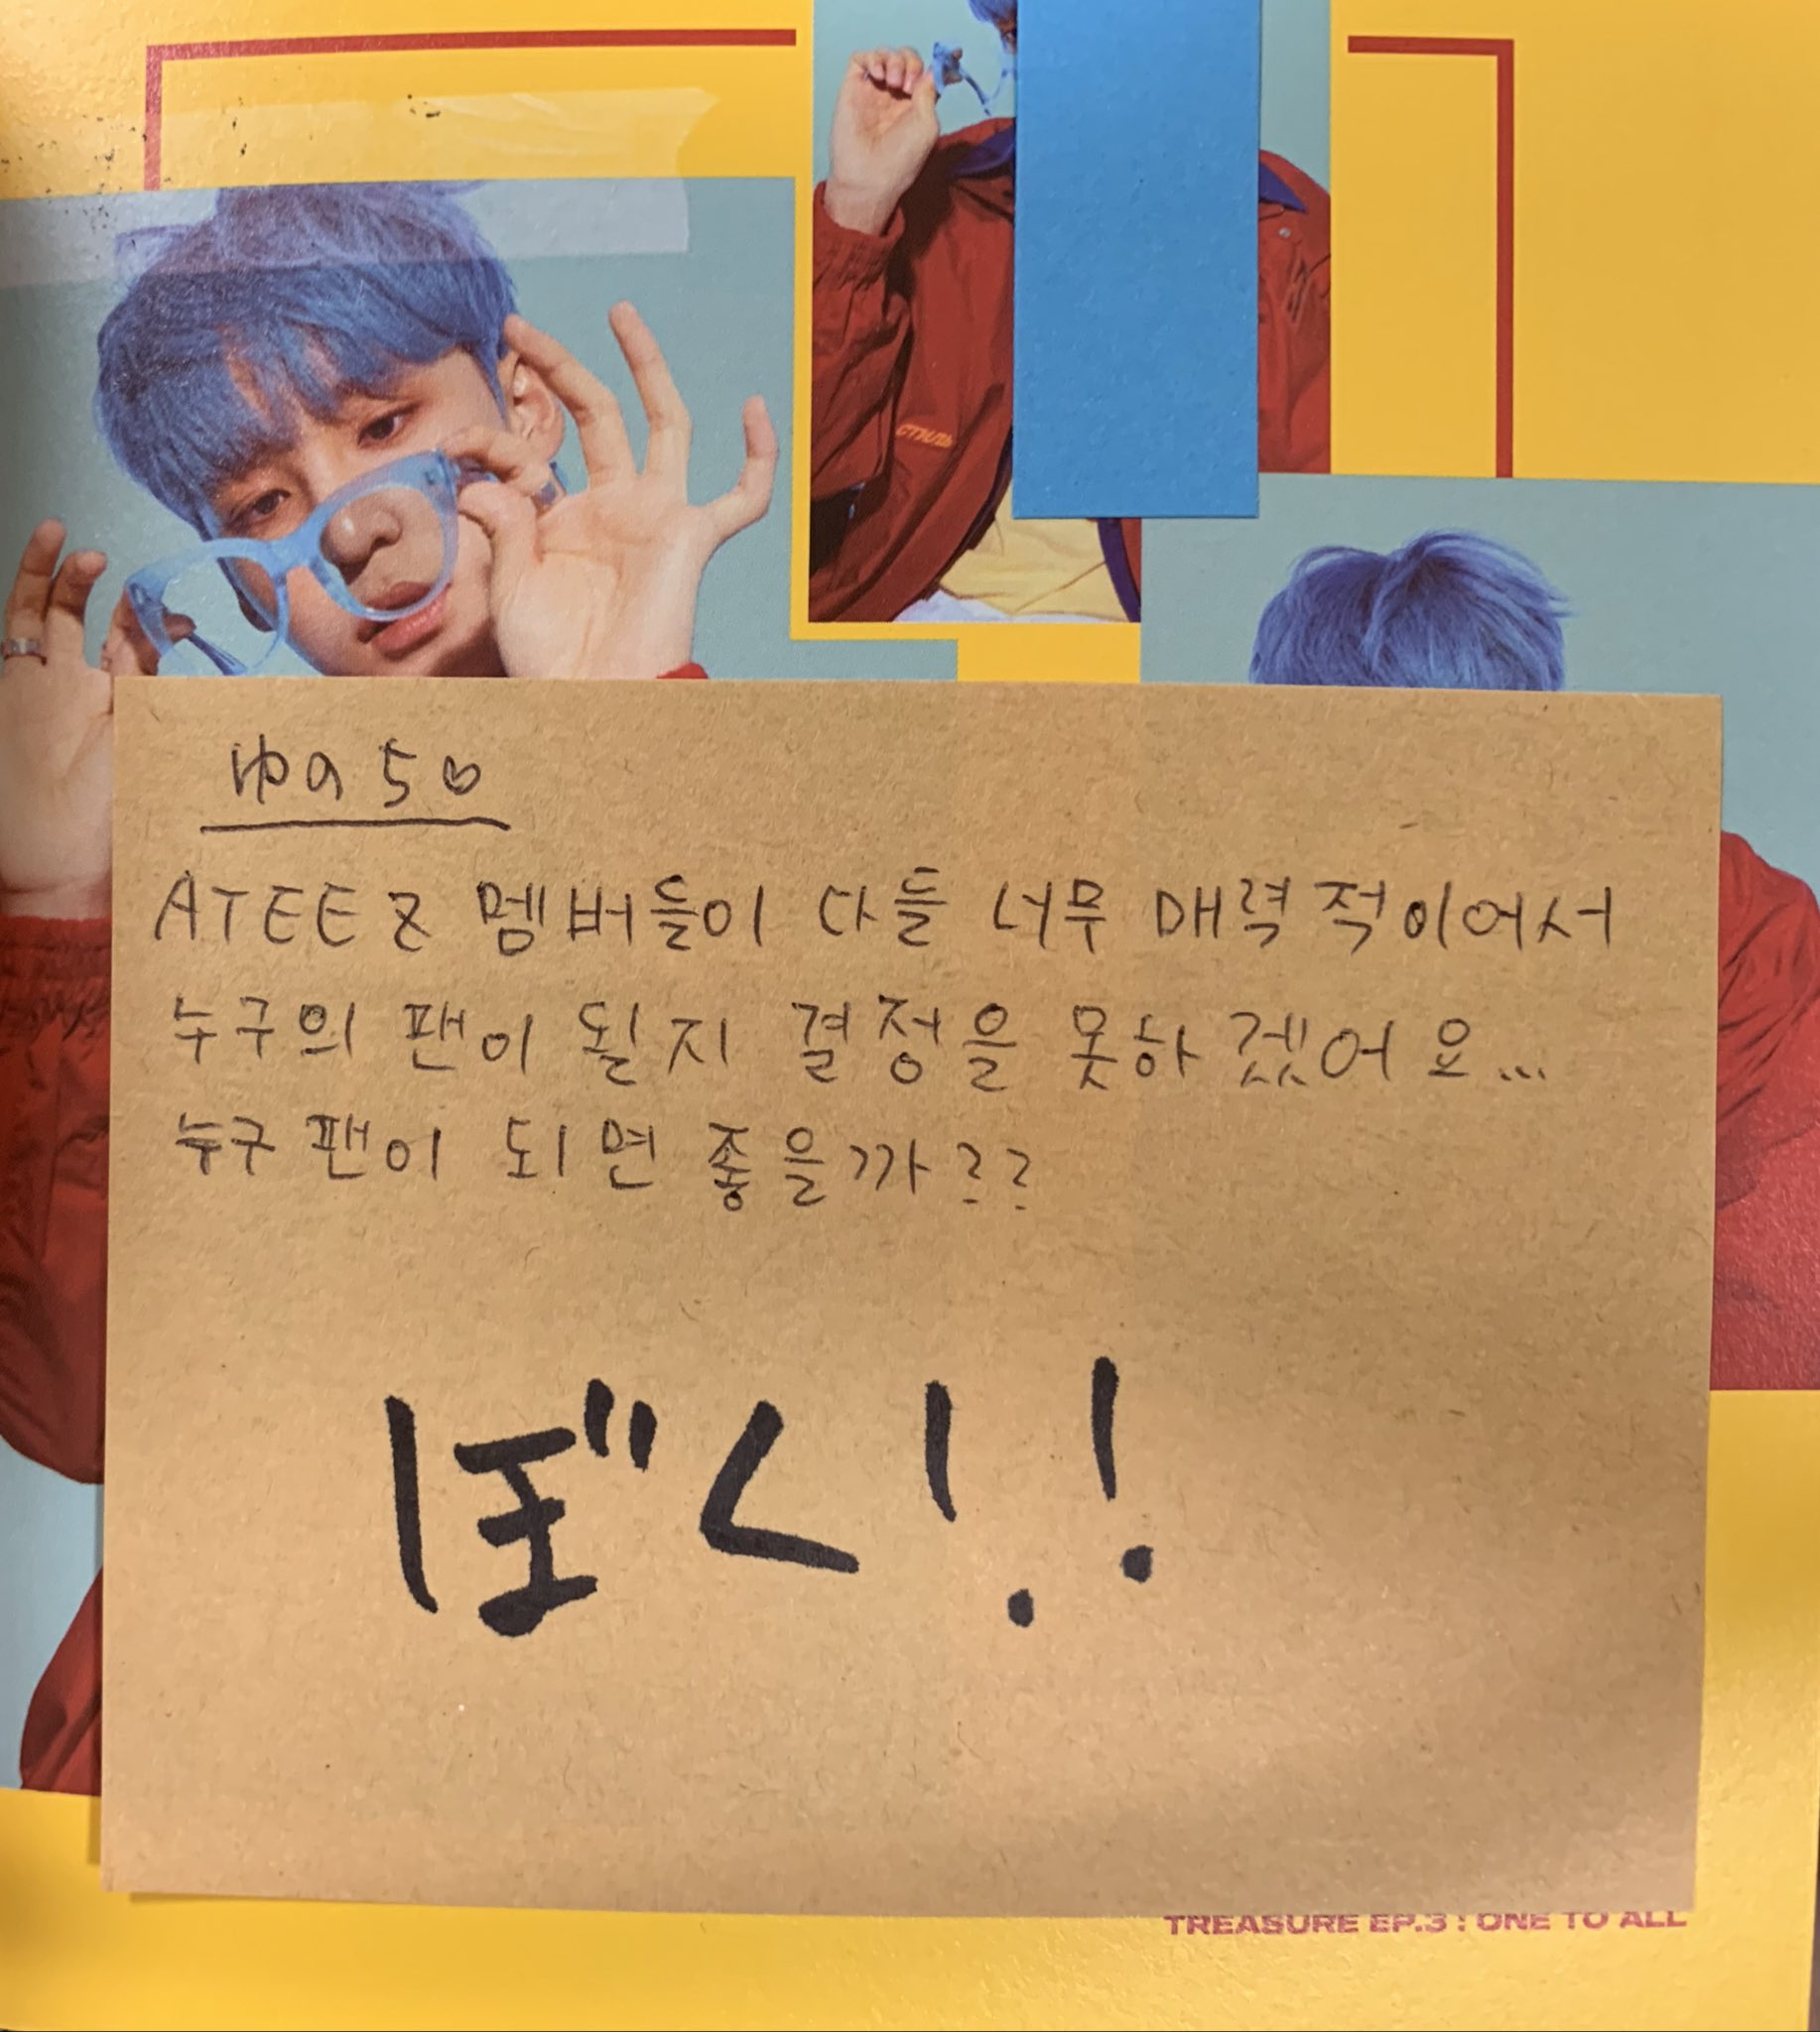 ゆの50
ATEEZ 멤버들이 다들 너무 매력적이어서
누구의 팬이 될지 결정을 못하겠어요...
누구 팬이 되면 좋을까??
ぼく!!
TREASURE EP.3 : ONE TO ALL